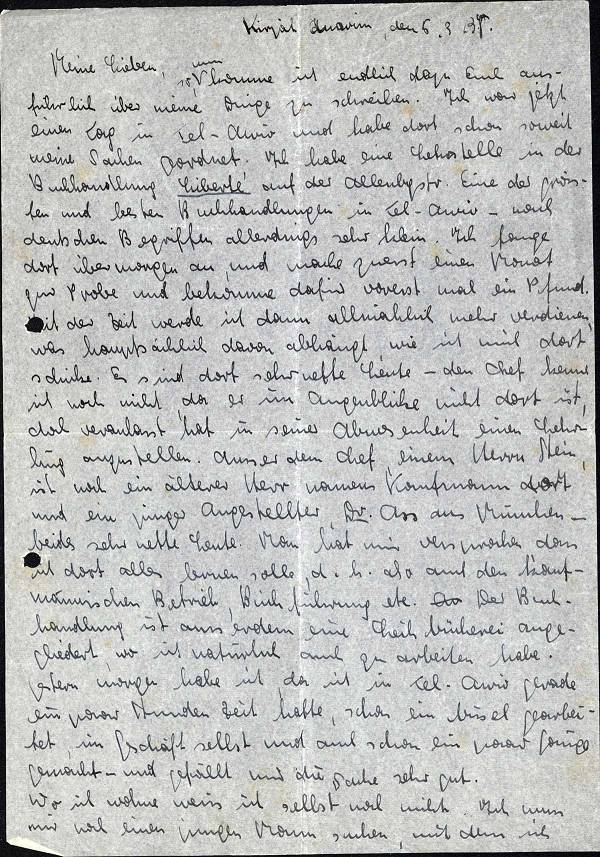 Kirjat Anavim, den 6.3.37.
Meine Lieben, nun
so komme ich endlich dazu Euch aus-
führlich über meine Dinge zu schreiben. Ich war jetzt
einen Tag in Tel-Awiw und habe dort schon soweit
meine Sachen geordnet. Ich habe eine Lehrstelle in der
Buchhandlung "Liberté" auf der Allenbystr. Eine der grös-
ten und besten Buchhandlungen in Tel-Awiw – nach
deutschen Begriffen allerdings sehr klein. Ich fange
dort übermorgen an und mache zuerst einen Monat
zur Probe und bekomme dafür vorerst mal ein Pfund.
Mit der Zeit werde ich dann allmählich mehr verdienen,
was hauptsächlich davon abhängt, wie ich mich dort
schicke. Es sind dort sehr nette Leute – den Chef kenne
ich noch nicht, da er im Augenblicke nicht dort ist,
doch veranlasst hat in seiner Abwesenheit einen Lehr-
ling anzustellen. Ausser dem Chef, einem Herrn Stein,
ist noch ein älterer Herr namens Kaufmann dort
und ein junger Angestellter, Dr. Ass aus München –
beides sehr nette Leute. Man hat mir versprochen dass
ich dort alles lernen solle, d.h. also auch den kauf-
männischen Betrieb, Buchführung etc. Der Buch-
handlung ist ausserdem eine Leihbücherei ange-
gliedert, wo ich natürlich auch zu arbeiten habe.
gestern morgen habe ich, da ich in Tel-Awiw gerade
ein paar Stunden Zeit hatte, schon ein bissel gearbei-
tet, im Geschäft selbst und auch schon ein paar Gänge
gemacht – und gefällt mir die Sache sehr gut.
Wo ich wohne weiss ich selbst noch nicht. Ich muss
mir noch einen jungen Mann suchen, mit dem ich